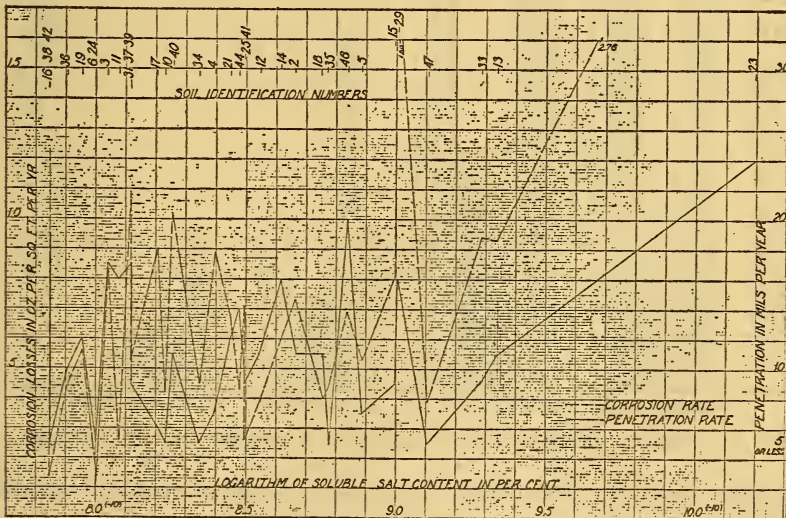 -16 38 42
36
-19
6 24
-3
11
-31 37 39
17
-10 40
-34
-4
21
-44 25 41
-12
-14
-2
18
-35
-46
-5
15 29
-47
-33
-13
276
-23
15
30
SOIL IDENTIFICATION NUMBERS
CORROSION LOSSES IN OZ PER SQ. FT. PER YR
10
20
PENETRATION IN MILS PER YEAR
5
10
CORROSION RATE
PENETRATION RATE
5
OR LESS
LOGARITHM OF SOLUBLE SALT CONTENT IN PER CENT
8.0 (-10)
8.5
9.0
9.5
10.0 (-10)